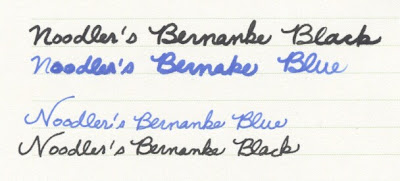 Noodler's Bernanke Black
Noodler's Bernake Blue
Noodler's Bernanke Blue
Noodler's Bernanke Black